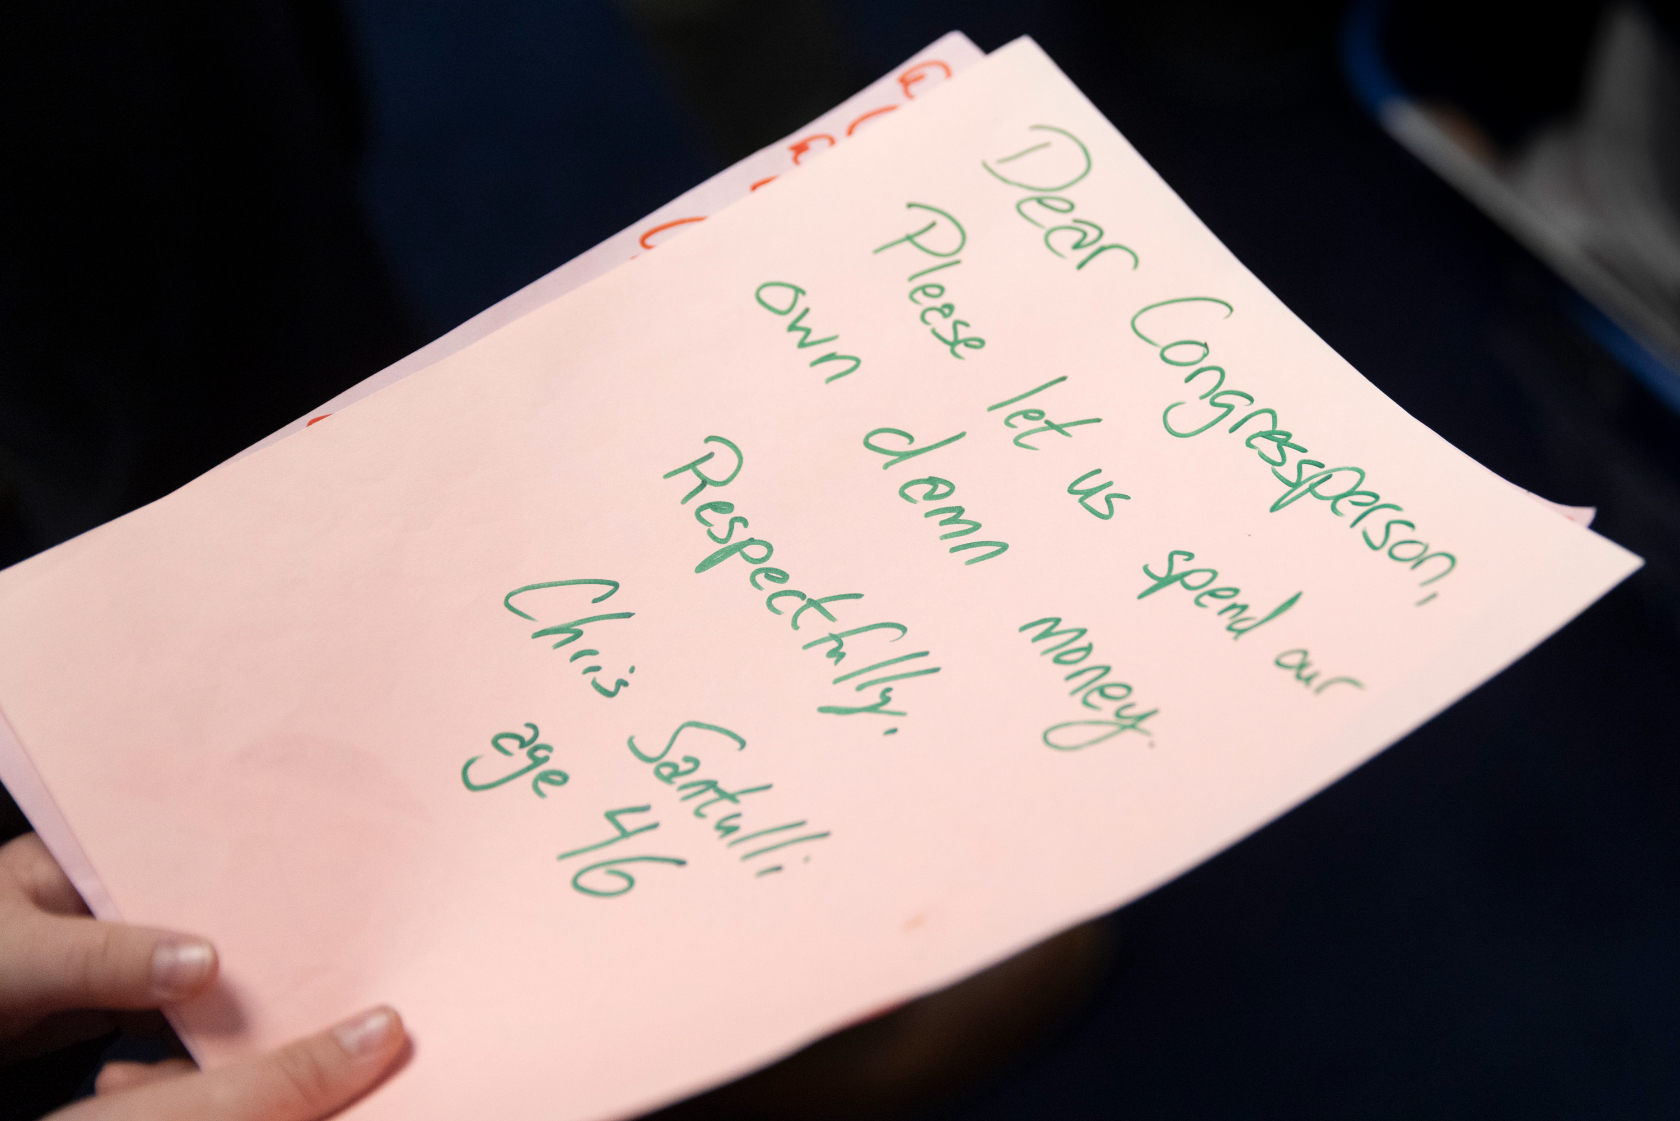 Dear Congressperson,
Please let us spend our
own damn money.
Respectfully.
Chris Santulli
age 46